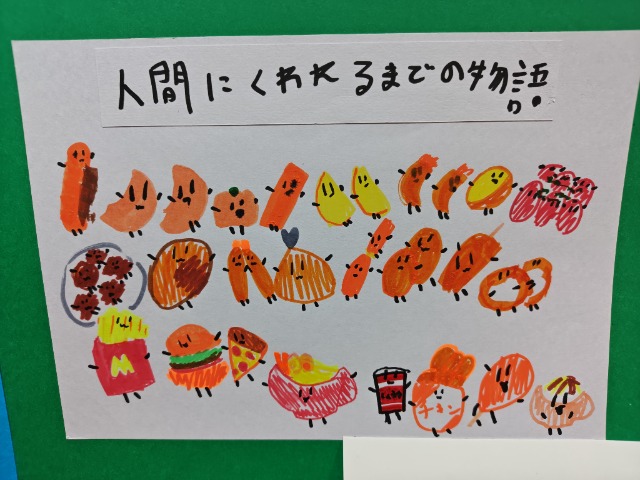 人間にくわれるまでの物語
M
チキン